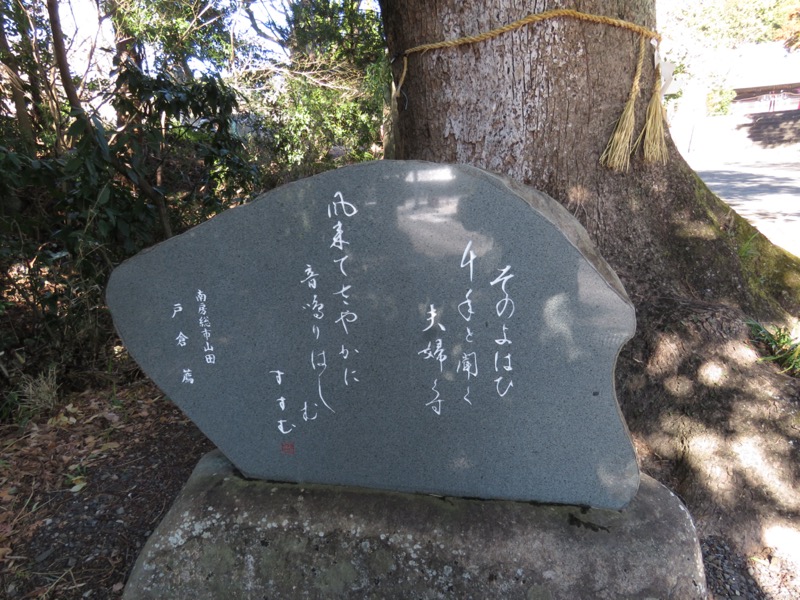 そのよはひ
千年と聞く
夫婦
風来てさやかに
音鳴りはしむ
すすむ
南房総市山田
戸倉